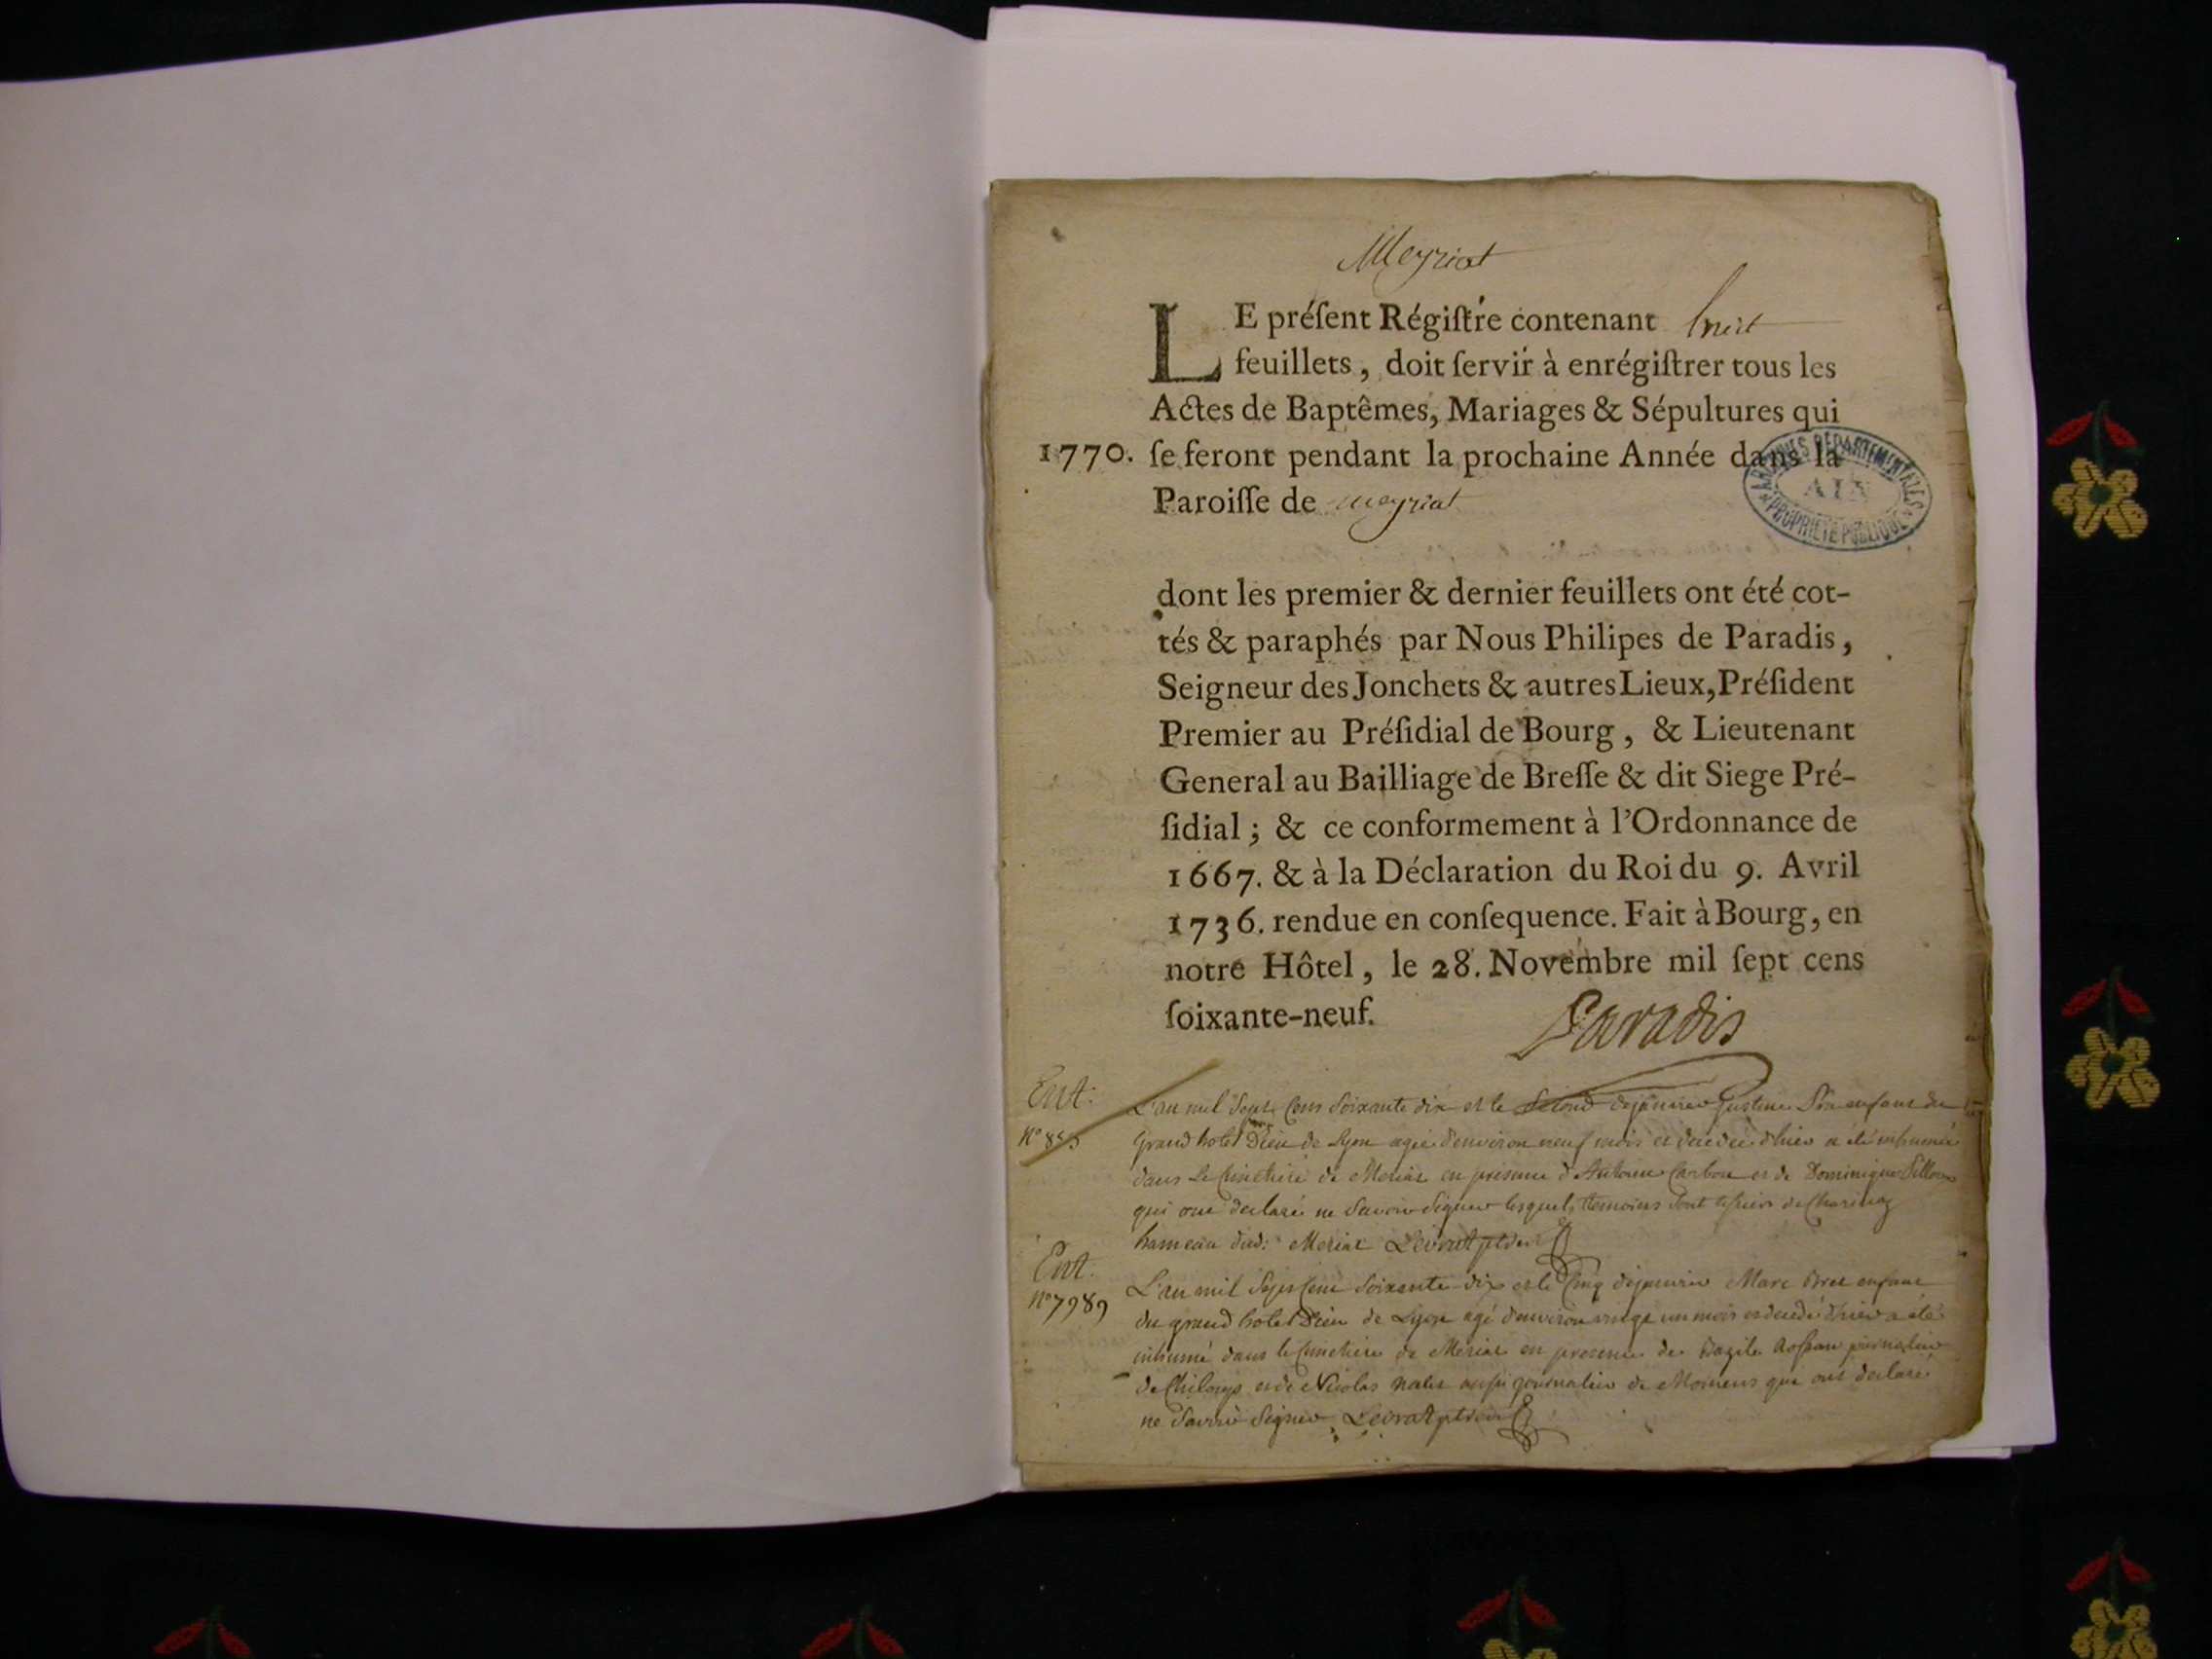 Meyriat
LE préſent Régiſtre contenant huit
feuillets, doit ſervir à enrégiſtrer tous les
Actes de Baptêmes, Mariages & Sépultures qui
1770. ſe feront pendant la prochaine Année dans la
Paroiſſe de meyriat
ARCHIVES DÉPARTEMENTALES
AIN
PROPRIÉTÉ PUBLIQUE
dont les premier & dernier feuillets ont été cot-
tés & paraphés par Nous Philipes de Paradis,
Seigneur des Jonchets & autres Lieux, Préſident
Premier au Préſidial de Bourg, & Lieutenant
General au Bailliage de Breſſe & dit Siege Pré-
ſidial; & ce conformement à l'Ordonnance de
1667. & à la Déclaration du Roi du 9. Avril
1736. rendue en conſequence. Fait à Bourg, en
notre Hôtel, le 28. Novembre mil ſept cens
ſoixante-neuf.
Paradis
Ent.
L'an mil Sept Cens Soixante dix et le Second de janvier enfant du
Grand hotel Dieu de Lyon agée d'environ neuf mois et decedée d'hier a été inhumée
dans Le Cimetiere de Meriat en presence d'Antoine Carbon et de Dominique
qui ont declaré ne Savoir Signer lesquels temoins Sont de Charinaz
hameau dud: Meriat Levrat
Ent.
N° 7989
L'an mil Sept Cent Soixante dix et le Cinq de janvier Marc enfant
du grand hotel Dieu de Lyon agé d'environ vingt un mois et decedé d'hier a été
inhumé dans le Cimetiere de Meriat en presence de journalier
de et de Nicolas aussi journalier de qui ont declaré
ne Savoir Signer Levrat